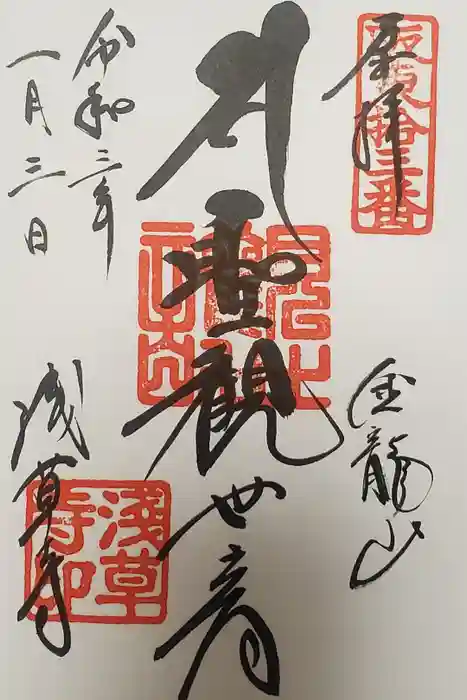 奉拝
坂東拾三番
金龍山
聖観世音
令和三年
一月三日
浅草寺
淺草寺印